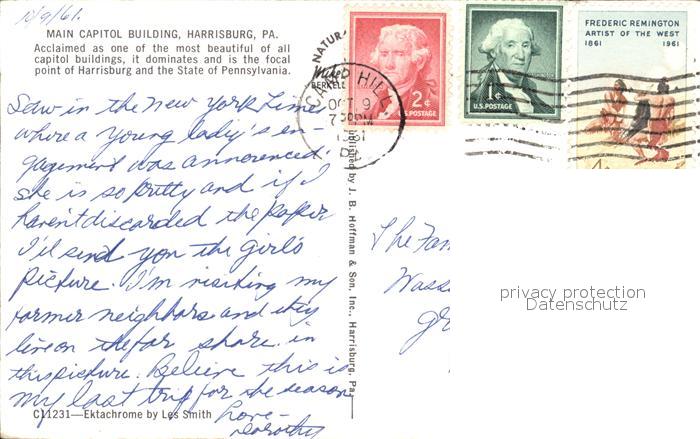 10/9/61.
MAIN CAPITOL BUILDING, HARRISBURG, PA.
Acclaimed as one of the most beautiful of all
capitol buildings, it dominates and is the focal
point of Harrisburg and the State of Pennsylvania.
Saw in the New York Times
where a young lady's en-
gagement was announced.
She is so pretty and if I
haven't discarded the paper
I'll send you the girl's
picture. I'm visiting my
former neighbors and they
live on the far shore in
this picture. Believe this is
my last trip for the season
Love-
Dorothy
C11231—Ektachrome by Les Smith
Published by J. B. Hoffman & Son, Inc., Harrisburg, Pa.
NATUR
Mike
BERKELE
HILL
OCT 9
PM
1961
2¢
U.S. POSTAGE
1¢
U.S. POSTAGE
FREDERIC REMINGTON
ARTIST OF THE WEST
1861 1961
The Fam
Wass
Gr
privacy protection
Datenschutz